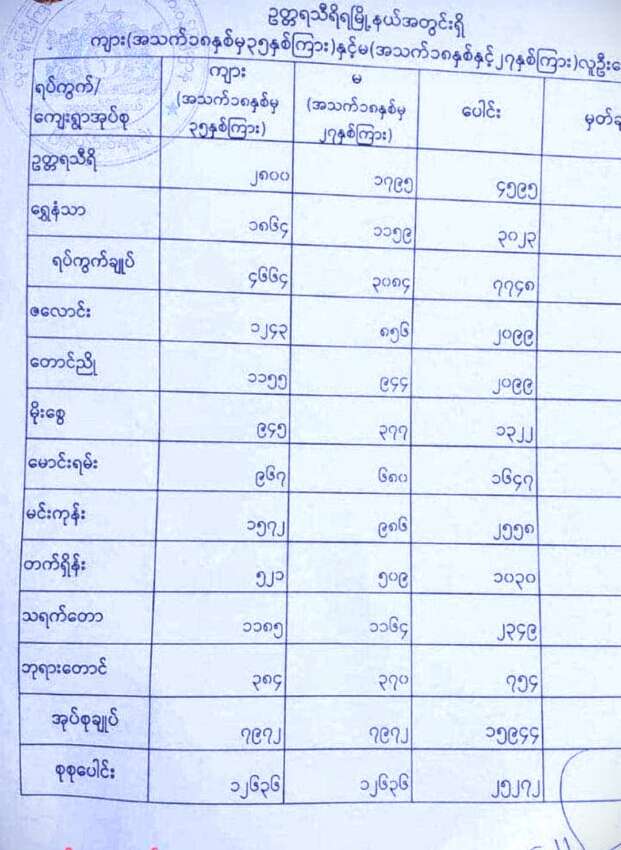 ဥတ္တရသီရိမြို့နယ်အတွင်းရှိ
ကျား(အသက်၁၈နှစ်မှ၃၅နှစ်ကြား)နှင့်မ(အသက်၁၈နှစ်နှင့်၂၇နှစ်ကြား)လူဦးရေ
ရပ်ကွက်/
ကျေးရွာအုပ်စု
ကျား
(အသက်၁၈နှစ်မှ
၃၅နှစ်ကြား)
မ
(အသက်၁၈နှစ်မှ
၂၇နှစ်ကြား)
ပေါင်း
မှတ်ချ
ဥတ္တရသီရိ ၂၈၀၀ ၁၇၉၅ ၄၅၉၅
ရွှေနံသာ ၁၈၆၄ ၁၁၅၉ ၃၀၂၃
ရပ်ကွက်ချုပ် ၄၆၆၄ ၃၀၈၄ ၇၇၄၈
ဇလောင်း ၁၂၄၃ ၈၅၆ ၂၀၉၉
တောင်ညို ၁၁၅၅ ၉၄၄ ၂၀၉၉
မိုးစွေ ၉၄၅ ၃၇၇ ၁၃၂၂
မောင်းရမ်း ၉၆၇ ၆၈၀ ၁၆၄၇
မင်းကုန်း ၁၅၇၂ ၉၈၆ ၂၅၅၈
တက်ရှိန်း ၅၂၁ ၅၀၉ ၁၀၃၀
သရက်တော ၁၁၈၅ ၁၁၆၄ ၂၃၄၉
ဘုရားတောင် ၃၈၄ ၃၇၀ ၇၅၄
အုပ်စုချုပ် ၇၉၇၂ ၇၉၇၂ ၁၅၉၄၄
စုစုပေါင်း ၁၂၆၃၆ ၁၂၆၃၆ ၂၅၂၇၂